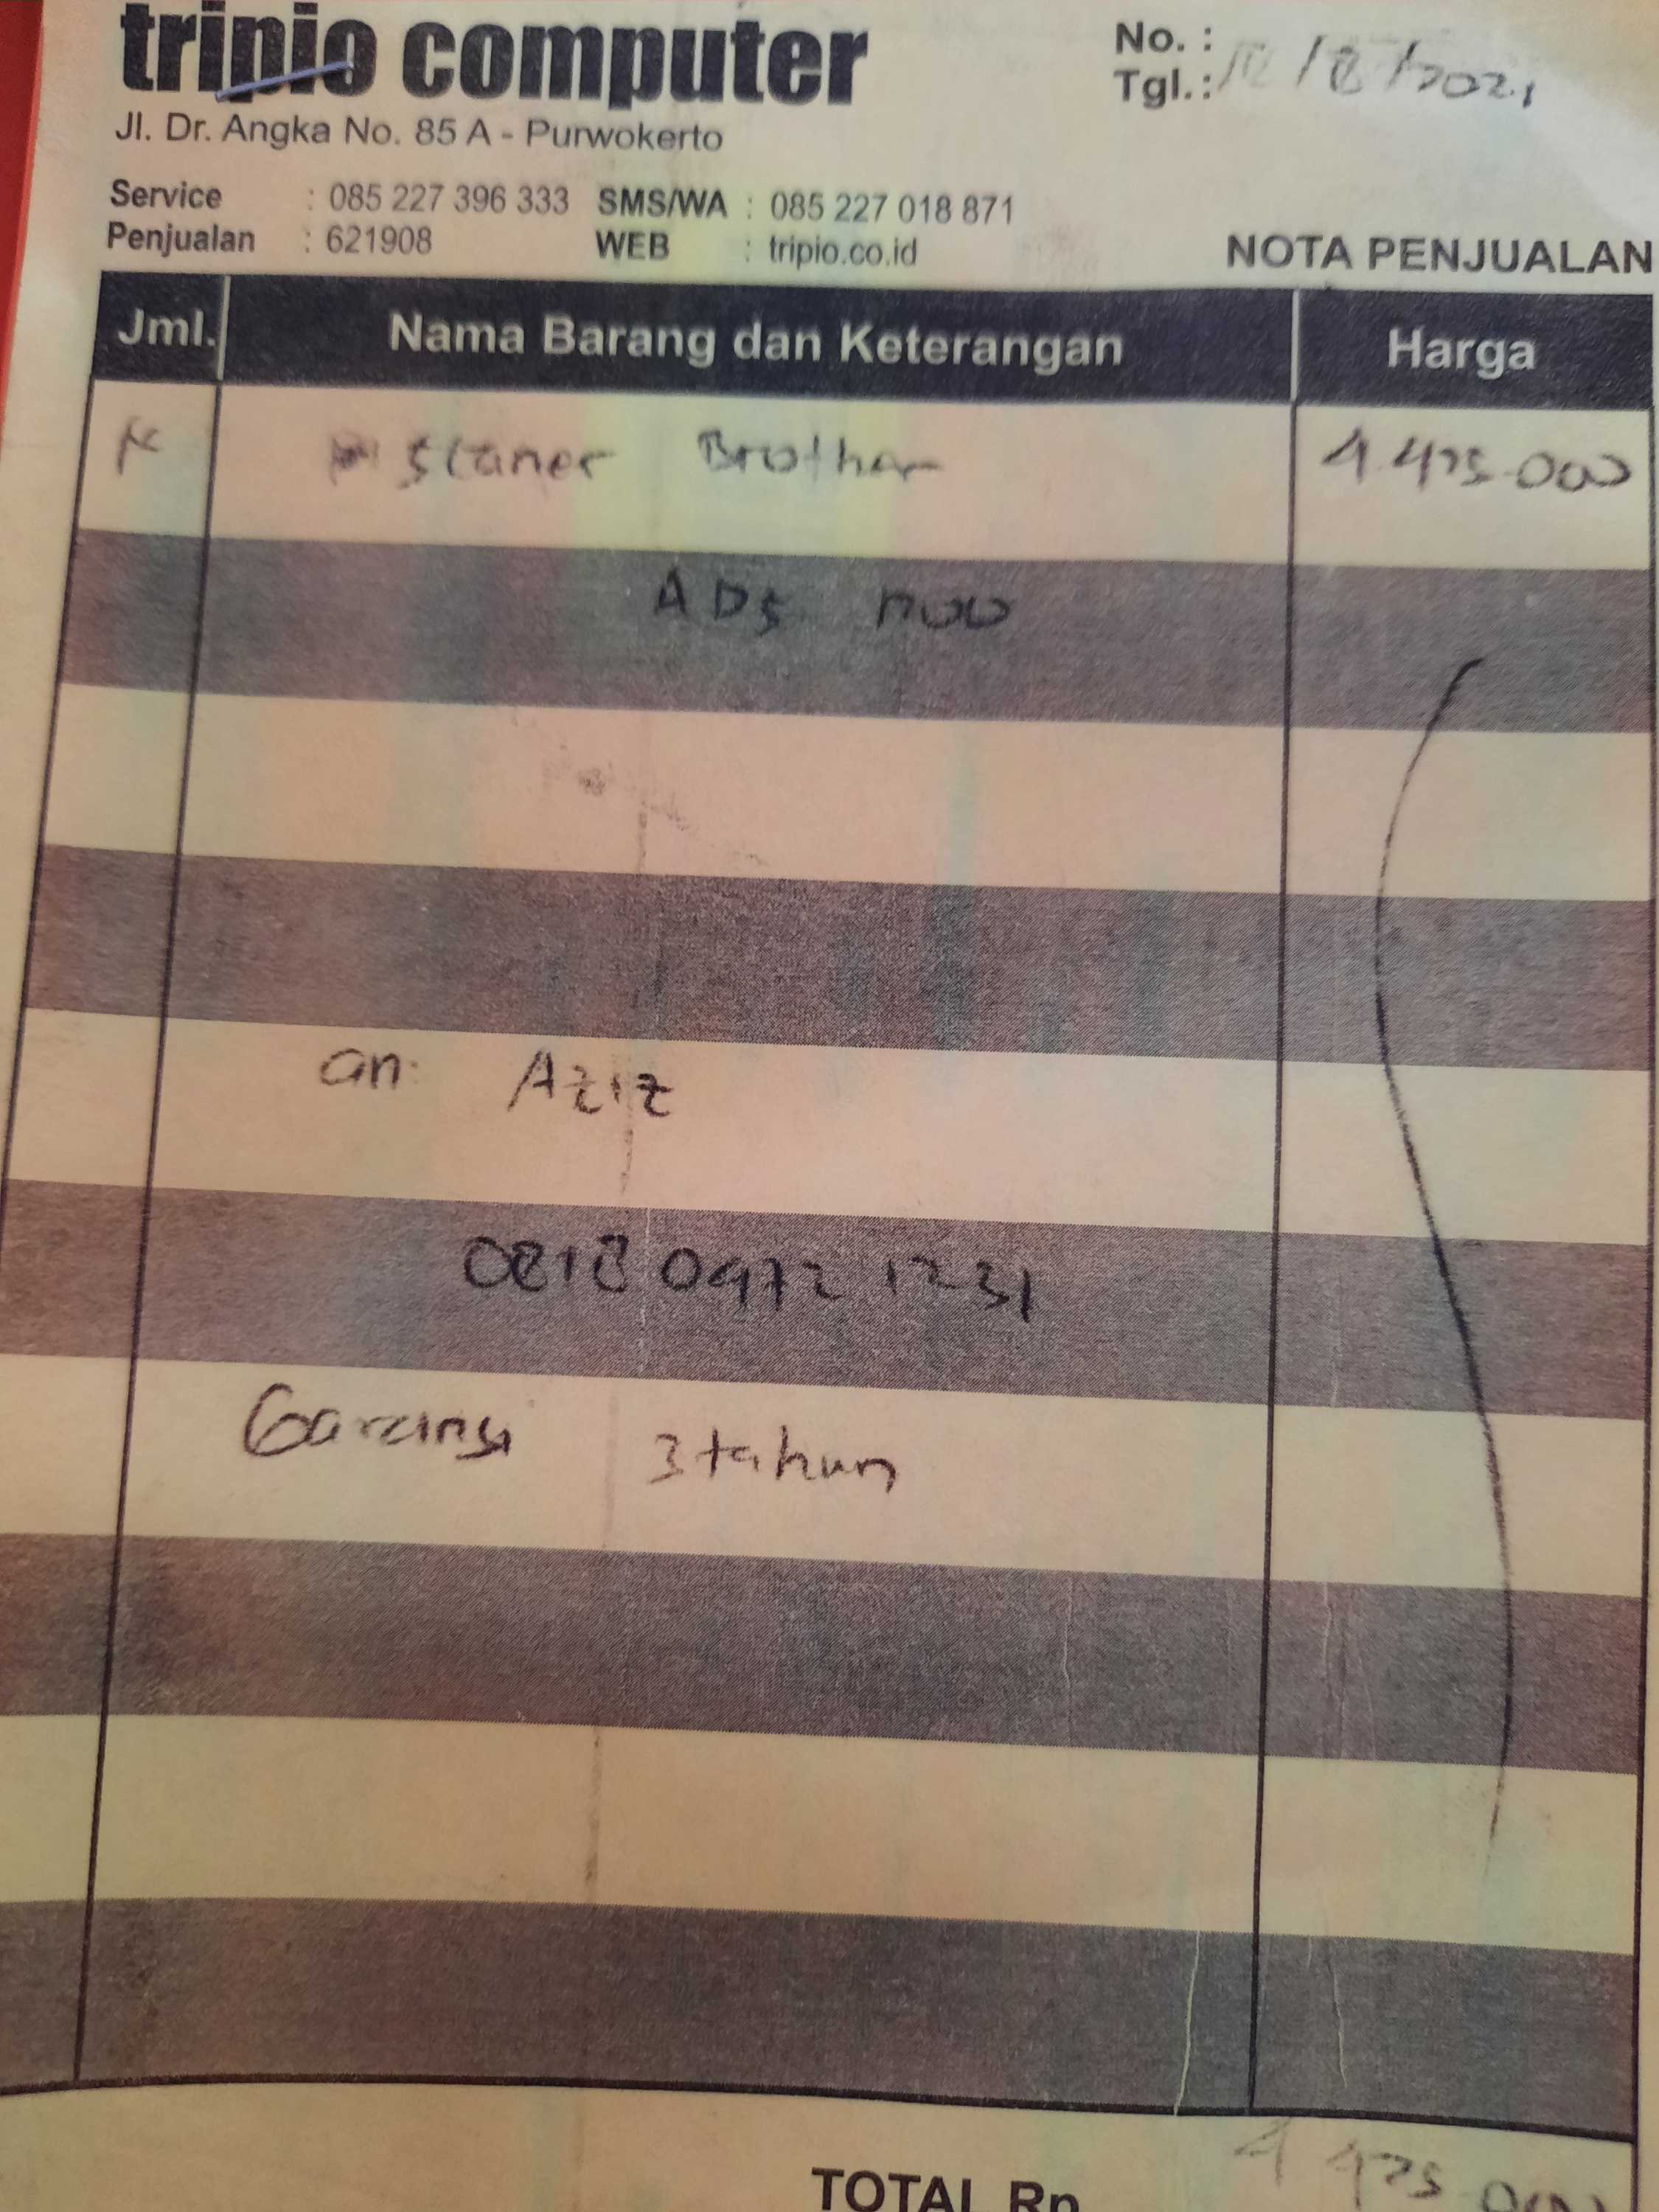 tripio computer
No. :
Tgl. : 12/8/2021
Jl. Dr. Angka No. 85 A - Purwokerto
Service : 085 227 396 333 SMS/WA : 085 227 018 871
Penjualan : 621908 WEB : tripio.co.id
NOTA PENJUALAN
Jml. Nama Barang dan Keterangan Harga
Scaner Brother 4.475.000
ADS
an: Aziz
0818 0972 1231
Garansi 3 tahun
TOTAL Rp 4 475 000